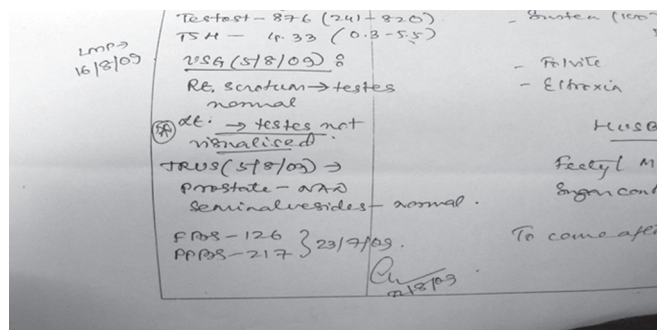 Testost - 876 (241 - 820)
TSH - 4.33 (0.3 - 5.5)
LMP →
16/8/09
USG (5/8/09) :
Rt. scrotum → testes
normal
Lt. → testes not
visualised.
TRUS (5/8/09) →
Prostate - NAD
Seminal vesicles - normal.
FBS - 126
PPBS - 217 } 23/7/09.
12/8/09
- Folvite
- Eltroxin
HUSB
Fertyl M
Sugar cont
To come afte